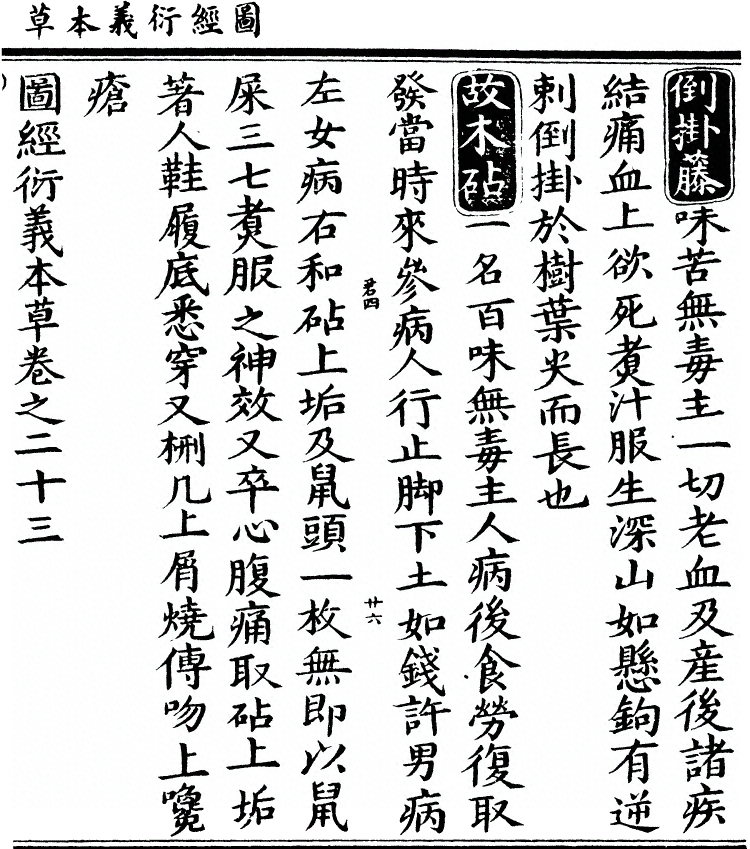 圖經衍義本草
倒掛藤味苦無毒主一切老血及産後諸疾
結痛血上欲死煑汁服生深山如懸鉤有逆
刺倒掛於樹葉尖而長也
故木砧一名百味無毒主人病後食勞復取
發當時來參病人行止脚下土如錢許男病
君四
廿六
左女病右和砧上垢及鼠頭一枚無即以鼠
屎三七煑服之神效又卒心腹痛取砧上垢
著人鞋履底悉穿又栦几上屑燒傅吻上㗻
瘡
圖經衍義本草卷之二十三